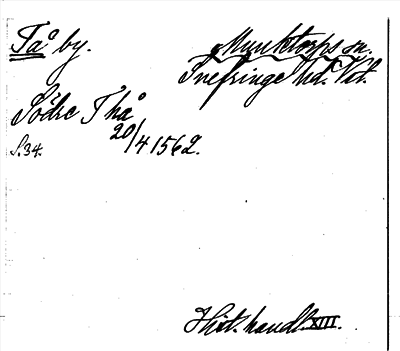 Tå by.
Munktorps sn.
Snefringe hd. Vstm.
Södre Thå
20/4 1562.
S. 34.
Hist. handl. XIII.